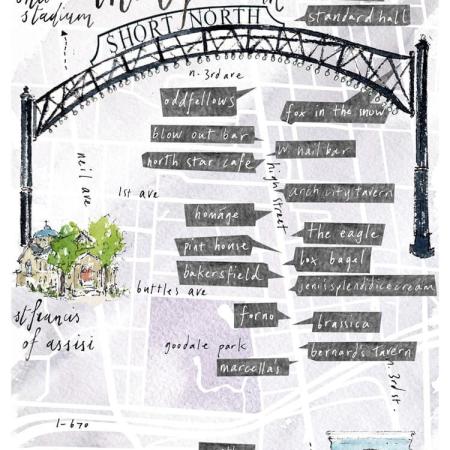 stadium
standard hall
SHORT NORTH
n. 3rd ave
oddfellows
fox in the snow
blow out bar
w nail bar
north star cafe
neil ave
high street
1st ave
arch city tavern
homage
the eagle
pint house
box bagel
bakersfield
jenissplendidicecream
buttles ave
st francis
of assisi
forno
brassica
goodale park
bernard's tavern
marcella's
n. 3rd st.
1-670